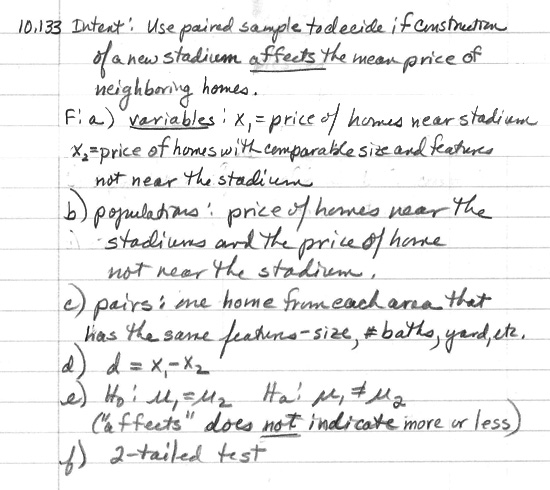 10.133 Intent: Use paired sample to decide if construction
of a new stadium affects the mean price of
neighboring homes.
F: a) variables: x₁ = price of homes near stadium
x₂ = price of homes with comparable size and features
not near the stadium
b) populations: price of homes near the
stadiums and the price of home
not near the stadium.
c) pairs: one home from each area that
has the same features - size, # baths, yard, etc.
d) d = x₁ - x₂
e) H₀: μ₁ = μ₂ Ha: μ₁ ≠ μ₂
("affects" does not indicate more or less)
f) 2-tailed test